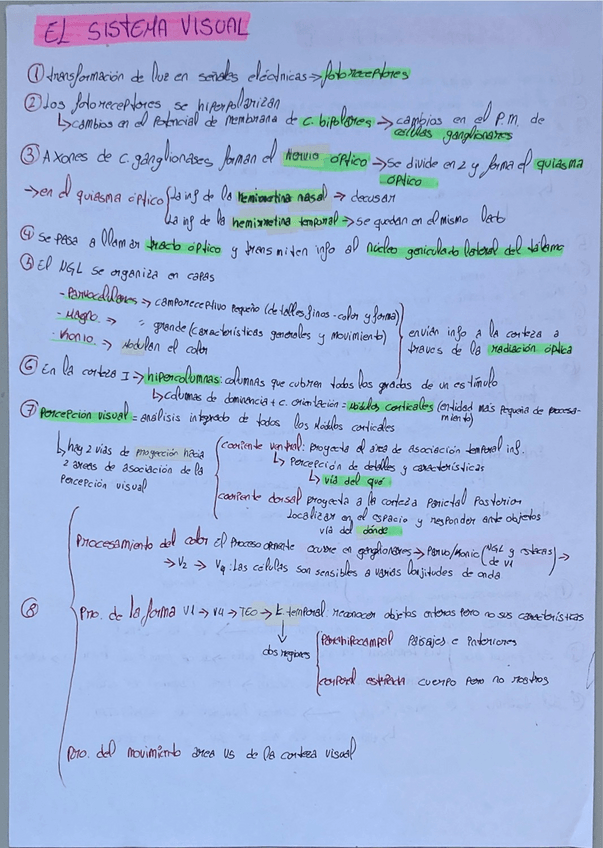 EL SISTEMA VISUAL
① transformación de luz en señales eléctricas → fotoreceptores
② Los fotoreceptores se hiperpolarizan
↳ cambios en el potencial de membrana de c. bipolares → cambios en el P.M. de
células ganglionares
③ Axones de c. ganglionares forman el nervio óptico → se divide en 2 y forma el quiasma
óptico
→ en el quiasma óptico { La inf de la hemirretina nasal → decusar
La inf de la hemirretina temporal → se quedan en el mismo lado
④ Se pasa a llamar tracto óptico y transmiten info al núcleo geniculado lateral del tálamo
⑤ El NGL se organiza en capas
- Parvocelulares → campo receptivo pequeño (detalles finos - color y forma)
- Magno. → " grande (características generales y movimiento)
- Konio → Modulan el color
envían info a la corteza a
traves de la radiación óptica
⑥ En la corteza I → hipercolumnas: columnas que cubren todos los grados de un estímulo
↳ columnas de dominancia + c. orientación = Módulos corticales (entidad más pequeña de procesa-
miento)
⑦ Percepción visual = análisis integrado de todos los Módulos corticales
↳ hay 2 vías de proyección hacia
2 areas de asociación de la
Percepción visual
corriente ventral: proyecta al area de asociación temporal inf.
↳ Percepción de detalles y características
↳ vía del qué
corriente dorsal proyecta a la corteza Parietal Posterior
Localizar en el espacio y responder ante objetos
vía del dónde
⑧
Procesamiento del color el Proceso oponente ocurre en ganglionares → Parvo/Konio (NGL y estacas de V1) →
→ V2 → V4: Las células son sensibles a varias longitudes de onda
Pro. de la forma V1 → V4 → TEO → C. temporal: reconocer objetos enteros pero no sus características
↓
dos regiones
Parahipocampal Paisajes e interiores
corporal estriada cuerpo pero no rostros
Pro. del movimiento area V5 de la corteza visual